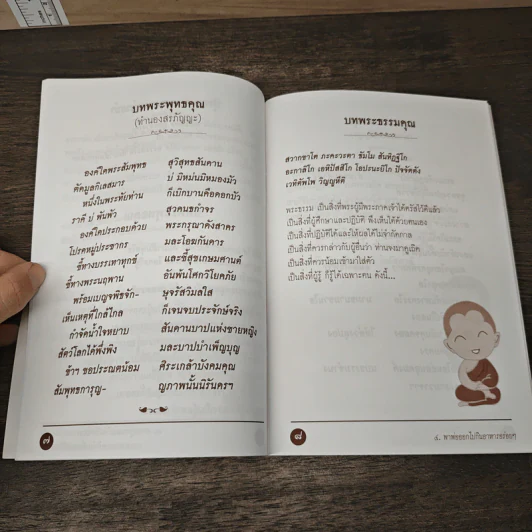 บทพระพุทธคุณ
(ทำนองสรภัญญะ)
องค์ใดพระสัมพุทธ สุวิสุทธสันดาน
ตัดมูลกิเลสมาร บ่ มิหม่นมิหมองมัว
หนึ่งในพระทัยท่าน ก็เบิกบานคือดอกบัว
ราคี บ่ พันพัว สุวคนธกำจร
องค์ใดประกอบด้วย พระกรุณาดังสาคร
โปรดหมู่ประชากร มละโอฆกันดาร
ชี้ทางบรรเทาทุกข์ และชี้สุขเกษมศานต์
ชี้ทางพระนฤพาน อันพ้นโศกวิโยคภัย
พร้อมเบญจพิธจัก- ษุจรัสวิมลใส
เห็นเหตุที่ใกล้ไกล ก็เจนจบประจักษ์จริง
กำจัดน้ำใจหยาบ สันดานบาปแห่งชายหญิง
สัตว์โลกได้พึ่งพิง มละบาปบำเพ็ญบุญ
ข้าฯ ขอประณตน้อม ศิระเกล้าบังคมคุณ
สัมพุทธการุญ- ญภาพนั้นนิรันดรฯ
๗
บทพระธรรมคุณ
สวากขาโต ภะคะวะตา ธัมโม สันทิฏฐิโก
อะกาลิโก เอหิปัสสิโก โอปะนะยิโก ปัจจัตตัง
เวทิตัพโพ วิญญูหีติ
พระธรรม เป็นสิ่งที่พระผู้มีพระภาคเจ้าได้ตรัสไว้ดีแล้ว
เป็นสิ่งที่ผู้ศึกษาและปฏิบัติ พึงเห็นได้ด้วยตนเอง
เป็นสิ่งที่ปฏิบัติได้และให้ผลได้ไม่จำกัดกาล
เป็นสิ่งที่ควรกล่าวกับผู้อื่นว่า ท่านจงมาดูเถิด
เป็นสิ่งที่ควรน้อมเข้ามาใส่ตัว
เป็นสิ่งที่ผู้รู้ ก็รู้ได้เฉพาะตน ดังนี้...
๘